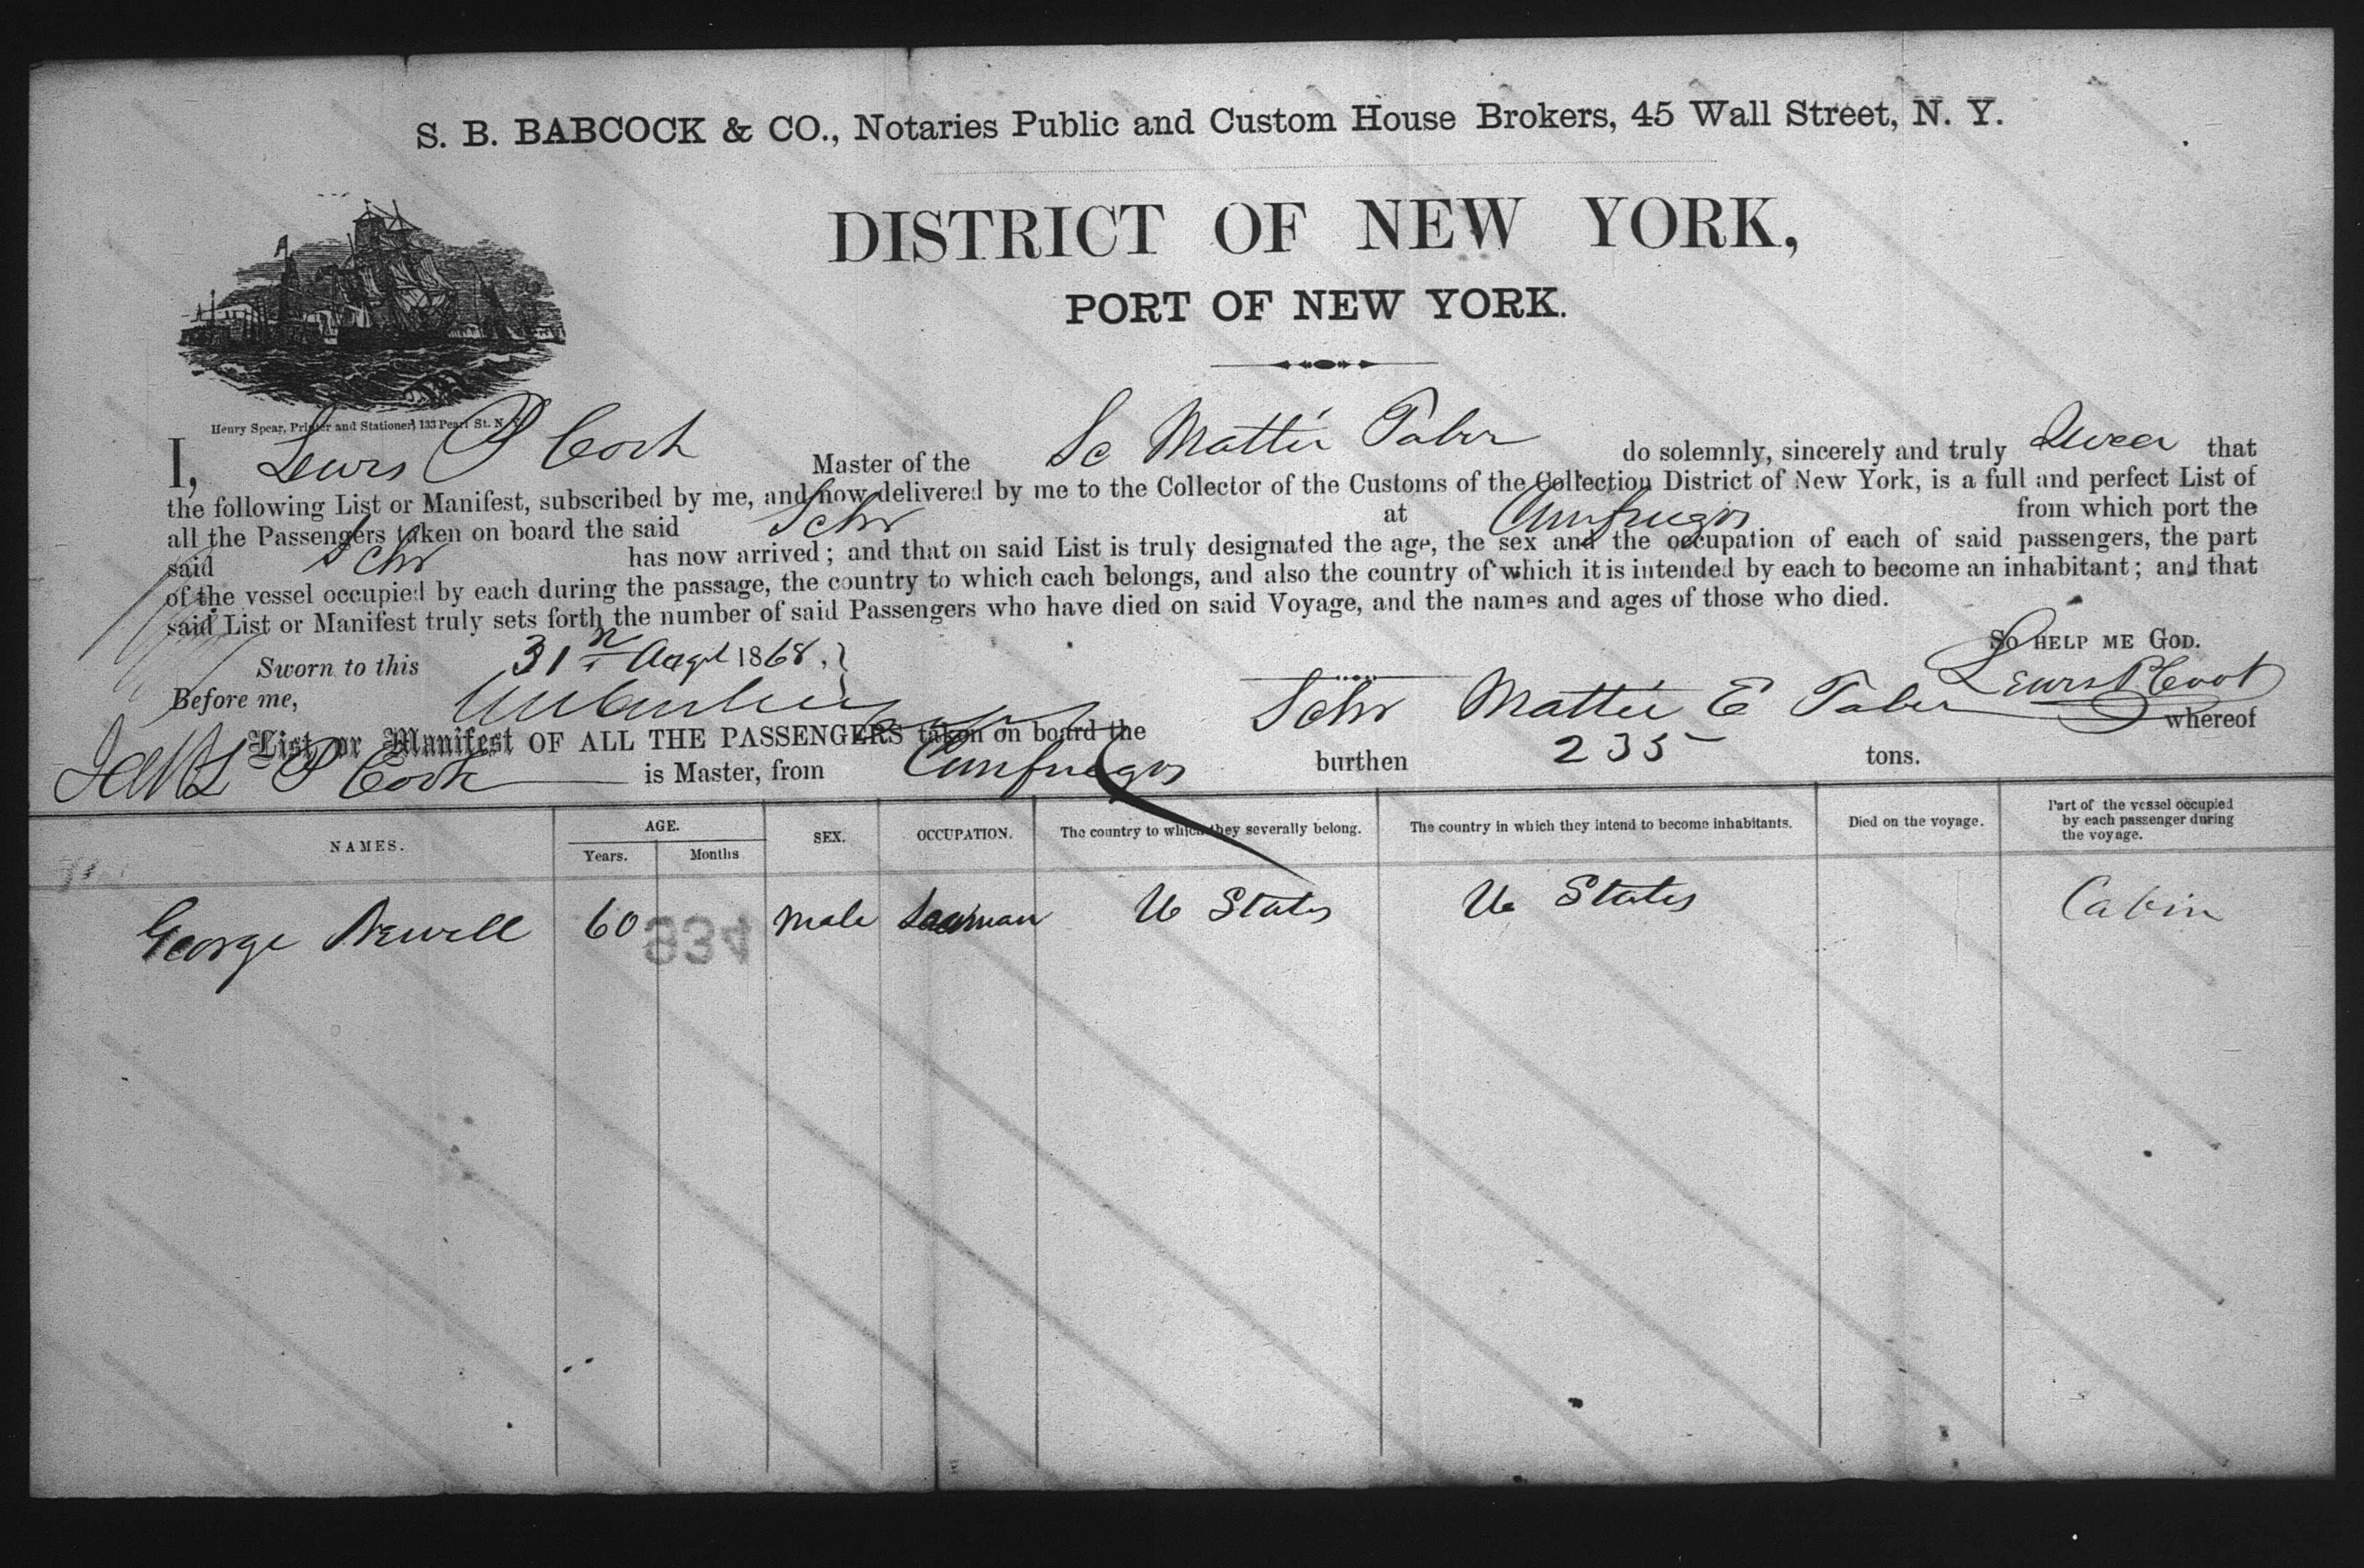 S. B. BABCOCK & CO., Notaries Public and Custom House Brokers, 45 Wall Street, N. Y.
DISTRICT OF NEW YORK,
PORT OF NEW YORK.
Henry Spear, Printer and Stationer, 133 Pearl St. N.
I, Lewis P Cook Master of the Sc Mattie Taber do solemnly, sincerely and truly Swear that
the following List or Manifest, subscribed by me, and now delivered by me to the Collector of the Customs of the Collection District of New York, is a full and perfect List of
all the Passengers taken on board the said Schr at Cienfuegos from which port the
said Schr has now arrived; and that on said List is truly designated the age, the sex and the occupation of each of said passengers, the part
of the vessel occupied by each during the passage, the country to which each belongs, and also the country of which it is intended by each to become an inhabitant; and that
said List or Manifest truly sets forth the number of said Passengers who have died on said Voyage, and the names and ages of those who died.
SO HELP ME GOD.
Sworn to this 31 Augt 1868,
Before me,
Lewis P Cook
List or Manifest OF ALL THE PASSENGERS taken on board the Schr Mattie E Taber whereof
L P Cook is Master, from Cienfuegos burthen 235 tons.
NAMES. AGE. Years. Months SEX. OCCUPATION. The country to which they severally belong. The country in which they intend to become inhabitants. Died on the voyage. Part of the vessel occupied by each passenger during the voyage.
George Newell 60 934 Male Seaman U States U States Cabin